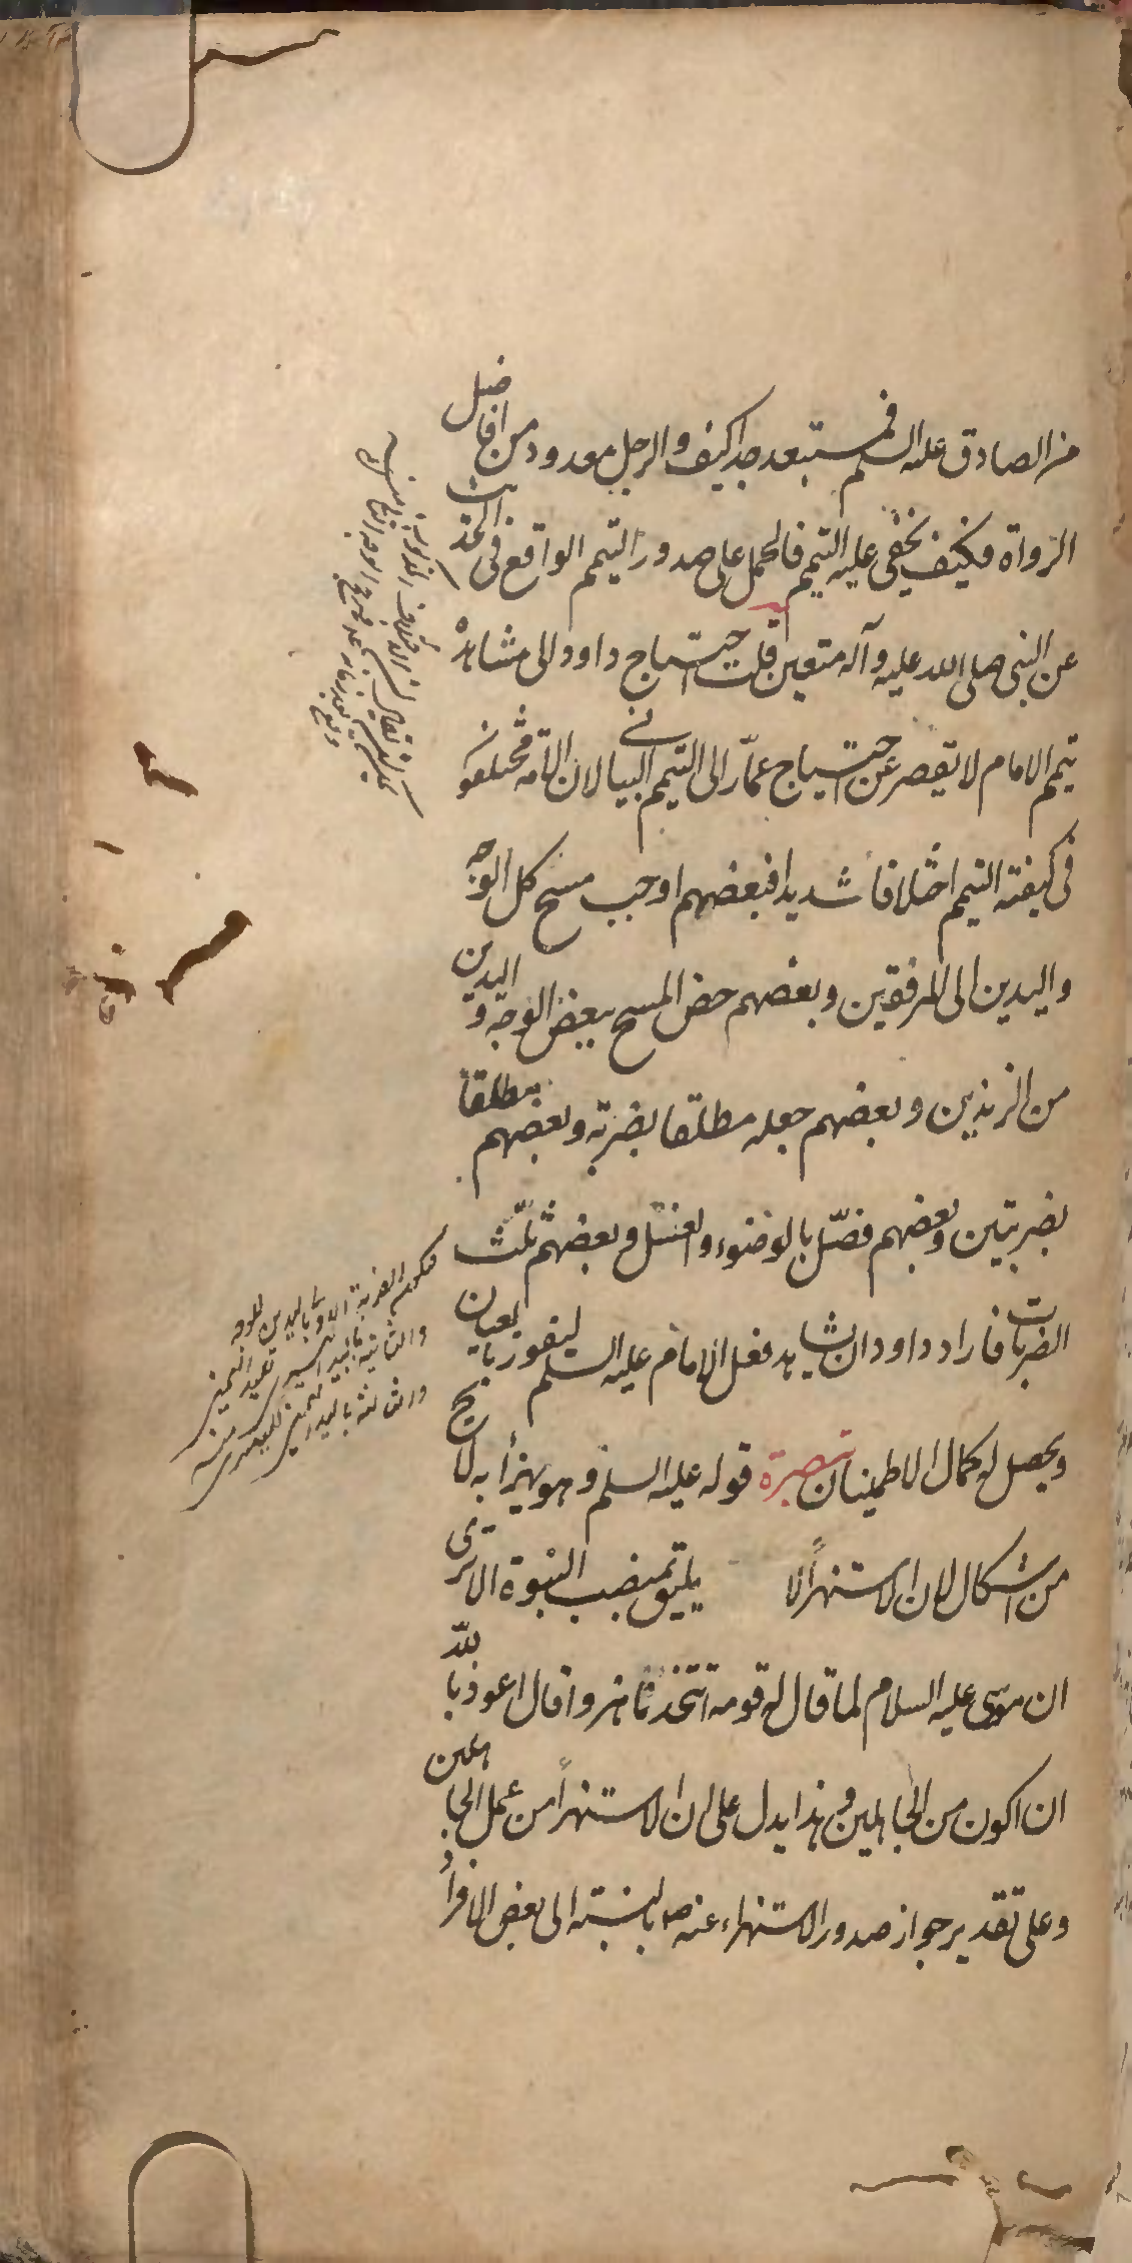 من الصادق عليه السلم فمستبعد جدا كيف والرجل معدود من افاضل
الرواة فكيف يخفى عليه التيمم فالحمل على صدور التيمم الواقع فى الحديث
عن النبى صلى الله عليه وآله متعين قلت احتياج داود الى مشاهدة
تيمم الامام لا تقصر عن احتياج عمّار الى التيمم البيانى لان الامة مختلفو
فى كيفية التيمم اختلافا شديدا فبعضهم اوجب مسح كل الوجه
واليدين الى المرفقين وبعضهم خص المسح ببعض الوجه واليدين
من الزندين وبعضهم جعله مطلقا بضربة وبعضهم مطلقا
بضربتين وبعضهم فصّل بالوضوء والغسل وبعضهم ثلّث
الضربات فاراد داود ان يشاهد فعل الامام عليه السلم ليفوز بالعيان
ويحصل له كمال الاطمينان تبصرة قوله عليه السلم وهو يهزأ به لا يخ
من اشكال لان الاستهزأ لا يليق بمنصب النبوة الا ترى
ان موسى عليه السلام لما قال له قومه اتتخذنا هزوا قال اعوذ بالله
ان اكون من الجاهلين وهذا يدل على ان الاستهزأ من عمل الجاهلين
وعلى تقدير جواز صدور الاستهزاء عنه ص بالنسبة الى بعض الافرا
فيكون الضربة الاولى باليدين للوجه
والثانية باليد اليسرى لليد اليمنى
والثالثة باليد اليمنى لليسرى منه